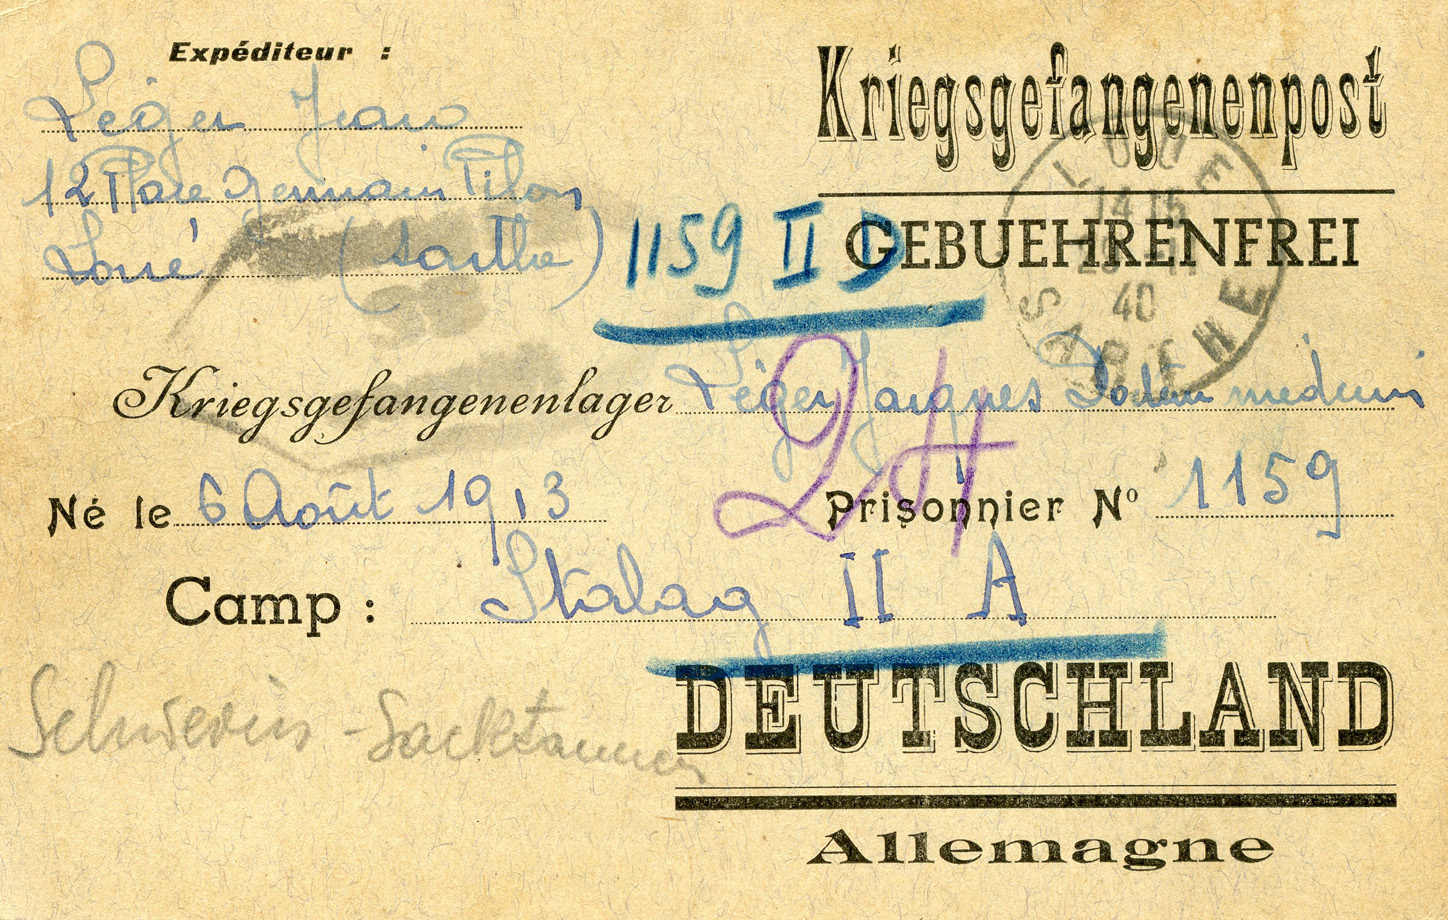 Expéditeur :
Léger Jean
12 Place Germain Pilon
Loué (Sarthe)
Kriegsgefangenenpost
GEBUEHRENFREI
1159 II D
LOUE
14 15
40
SARTHE
Kriegsgefangenenlager Léger Jacques Docteur médecin
24
Né le 6 Août 1913 Prisonnier Nº 1159
Camp : Stalag II A
DEUTSCHLAND
Schwerin - Sacktannen
Allemagne